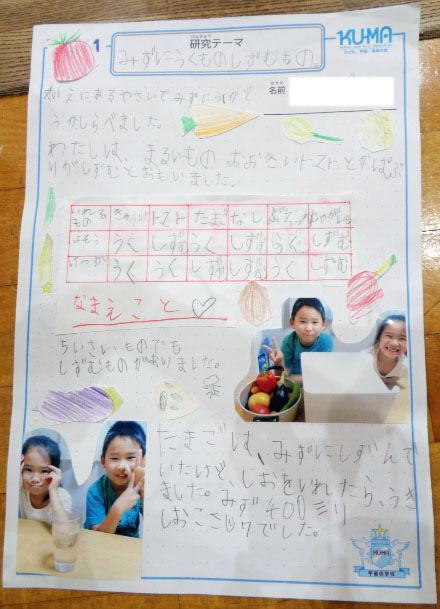 1
けんきゅう
研究テーマ
みずにうくものしずむもの。
KUMA
名前
いえにあるやさいでみずにうくかど
うかしらべました。
わたしは、まるいもの おおきいトマトとかぱぷ
りがしずむとおもいました。
いれるもの きゅうり トマト たまご なし
よそう うく しずむ うく しずむ しずむ
けっか うく うく しずむ しずむ うく しずむ
なまえこと♡
ちいさいものでも
しずむものがありました。
たまごは、みずにしずんで
いたけど、しおをいれたら、うき
ました。みず400ミリ
しおこさじ7でした。
KUMA